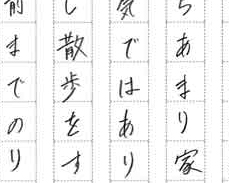 らあまり家
気ではあり
し散歩をす
前までのり